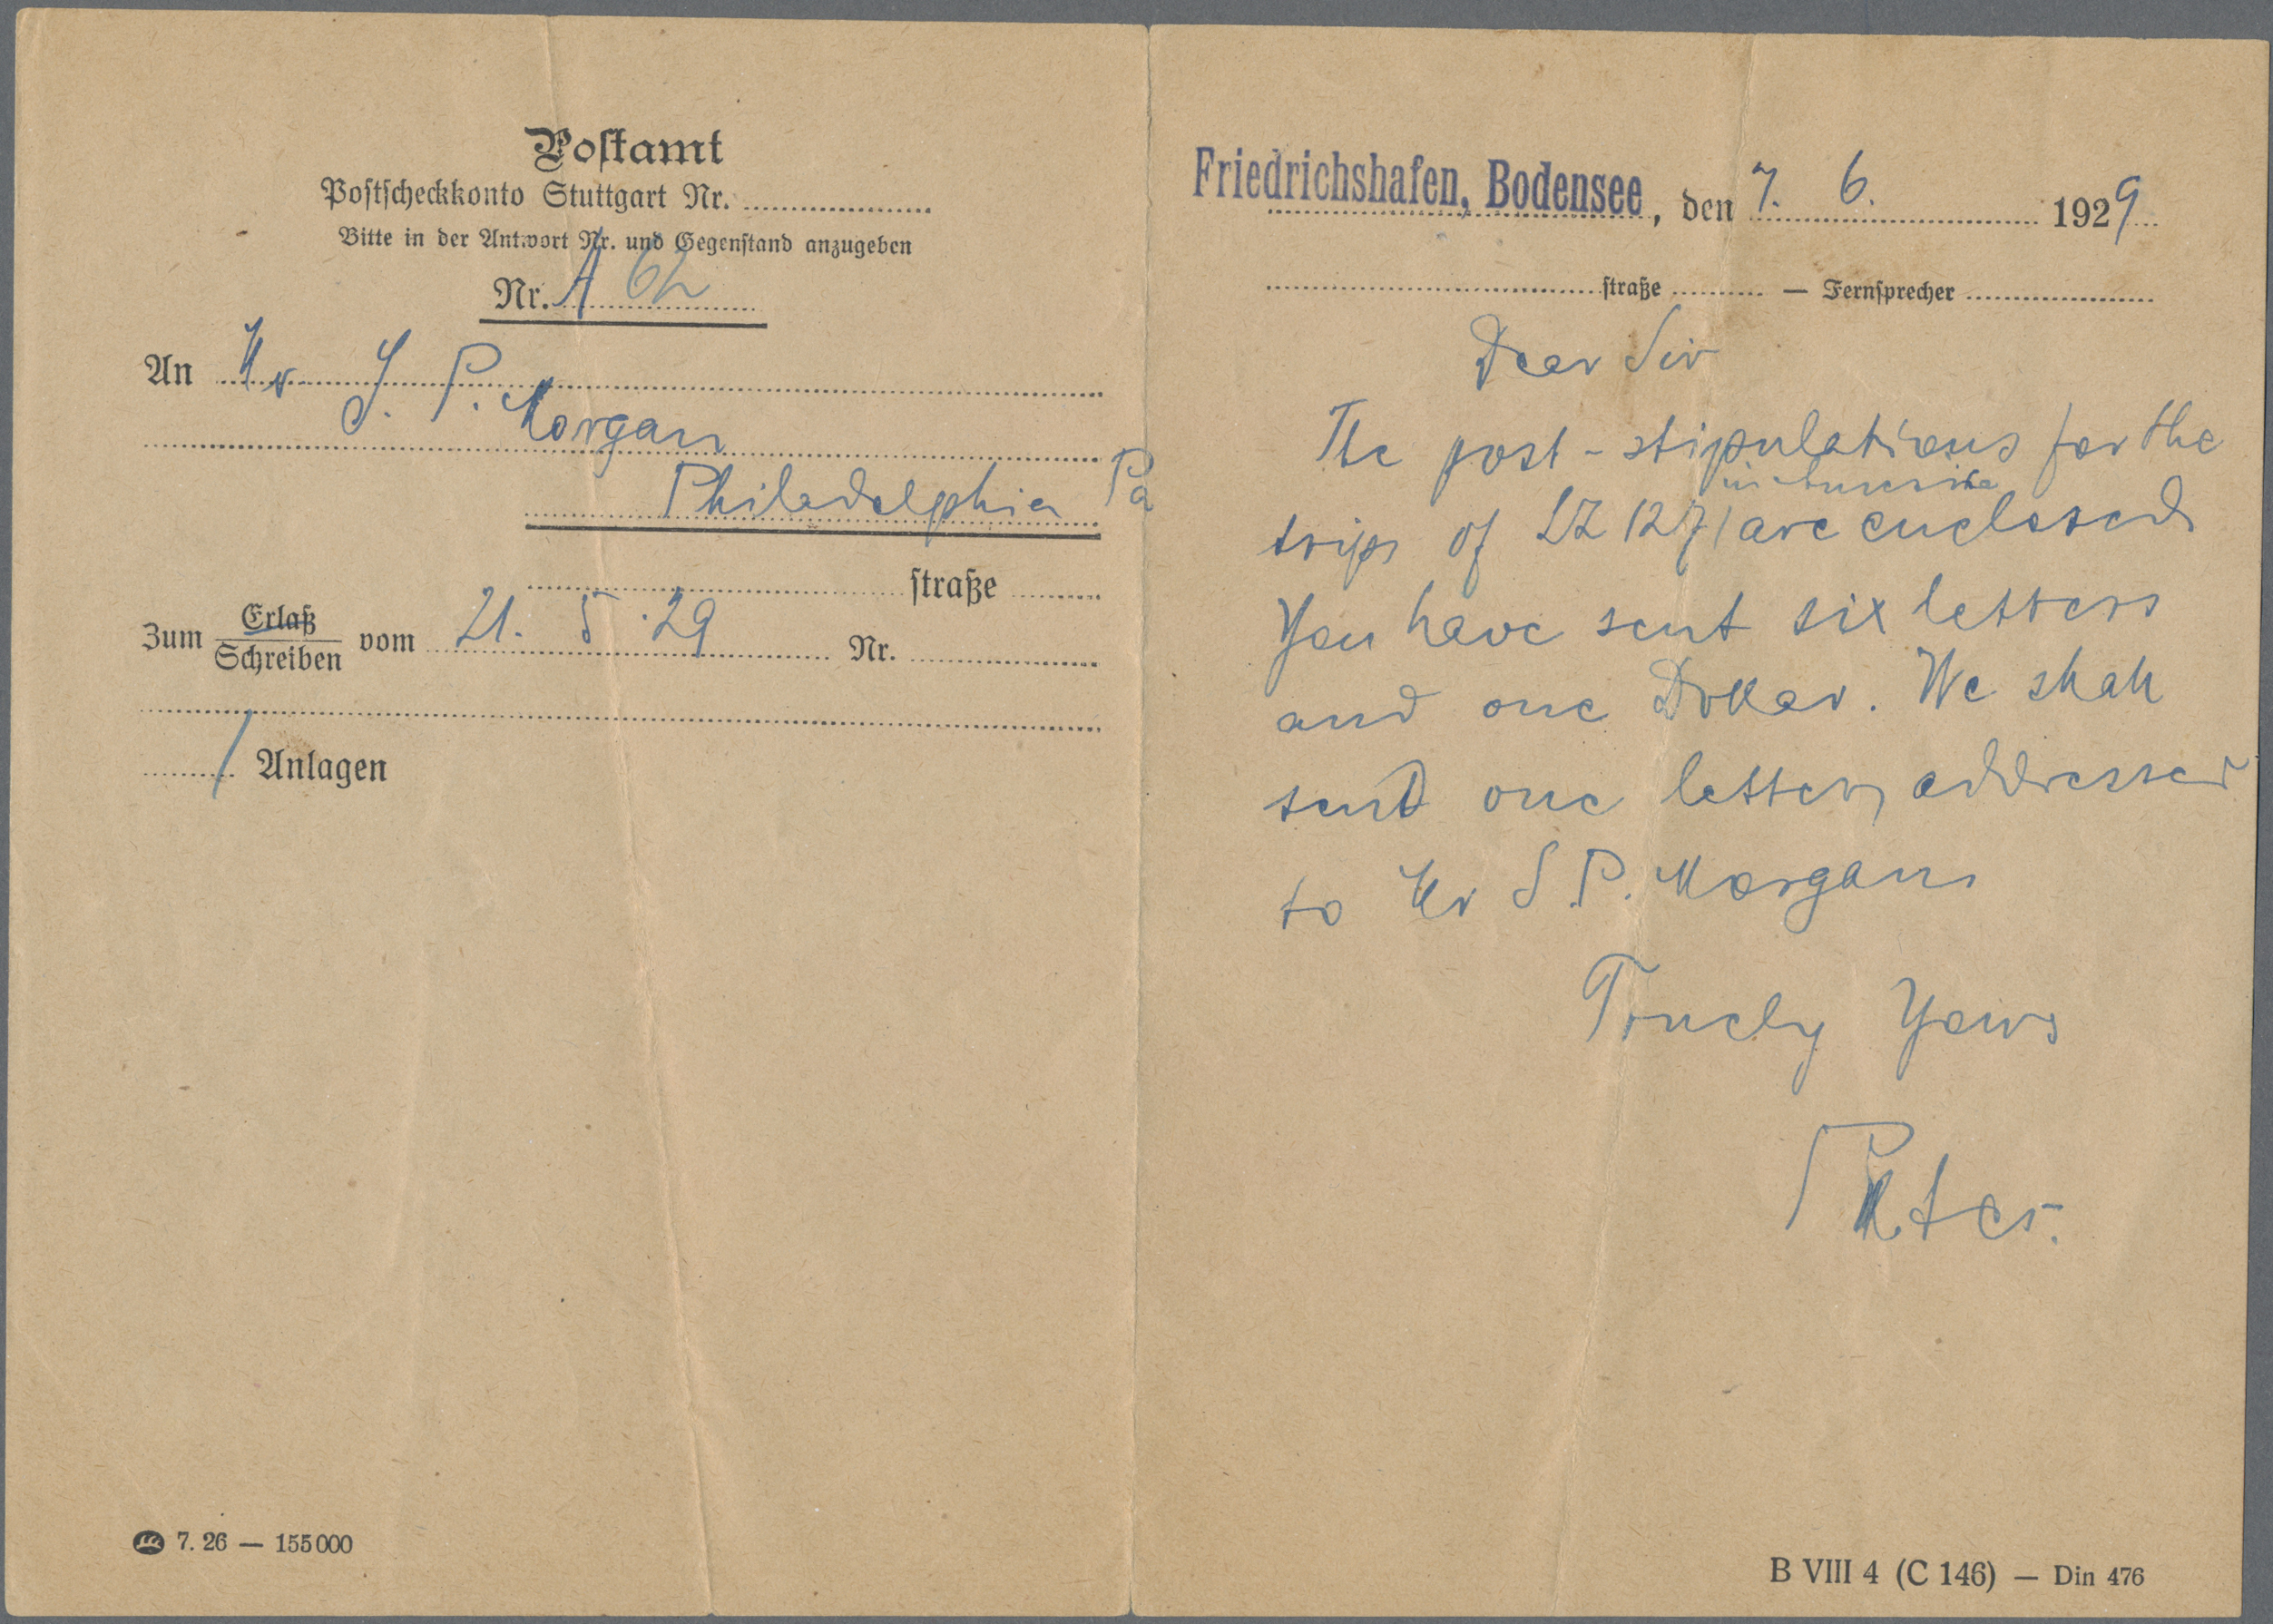 Postamt
Postscheckkonto Stuttgart Nr.
Bitte in der Antwort Nr. und Gegenstand anzugeben
Nr. A 62
An Mr J. P. Morgan
Philadelphia Pa
straße
Zum Erlaß vom 21. 5. 29 Nr.
Schreiben
1 Anlagen
7. 26 — 155000
Friedrichshafen, Bodensee, den 7. 6. 1929
straße — Fernsprecher
Dear Sir
The post-stipulations for the
trips of LZ 127 are enclosed
You have sent six letters
and one Dollar. We shall
send one letter, addressed
to Mr J. P. Morgan
Truely Yours
B VIII 4 (C 146) — Din 476